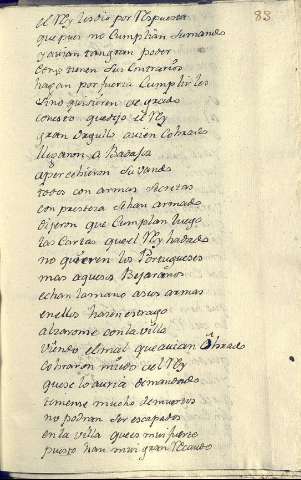 83
el Rey les dio por Respuesta
que pues no Cumplian su mando
y avian tan gran poder
tienen sus Contrarios
hagan por fuerza Cumplir los
sino quisieren de grado
con esto que dijo el Rey
gran orgullo avien Cobrado
llegaron a Badajos
apercebieron su vando
todos con armas secretas
con presteza se han armado
dijeron que Cumplan luego
las Cartas que el Rey ha dado
no quieren los Portugueses
mas aquesos Bejaranos
echan la mano a sus armas
en ellos hazen estrago
alzaronse con la villa
viendo el mal que avian obrado
cobraron miedo del Rey
que se lo auria demandado
temense mucho de muertos
no podran ser escapados
en la villa que es mui fuerte
puesto han mui gran Recaudo